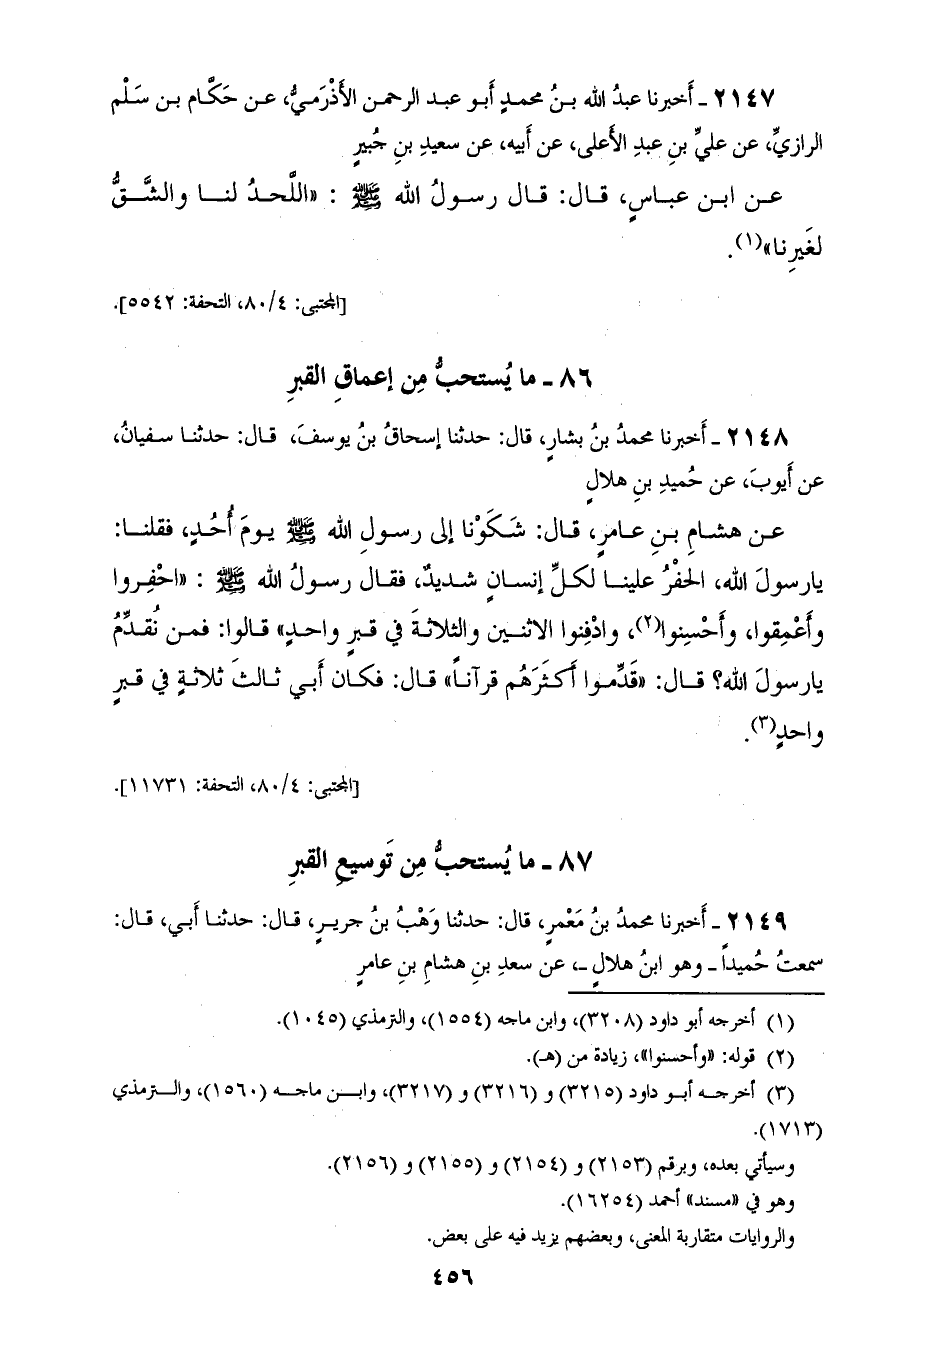 ٢١٤٧ ـ أَخبرنا عبدُ الله بـنُ محمدٍ أبـو عبـد الرحمـن الأَذْرَمـيُّ، عـن حَكَّـام بـن سَـلْم
الرازيِّ، عن عليِّ بنِ عبدِ الأَعلى، عن أَبيه، عن سعيدِ بنِ جُبيرٍ
عـن ابـن عبـاسٍ، قـال: قـال رسـولُ الله ﷺ : «اللَّحـدُ لنـا والشَّـقُّ
لغَيرِنا»(١).
[المجتبى: ٨٠/٤، التحفة: ٥٥٤٢].
٨٦ ـ ما يُستحبُّ مِن إعماقِ القبرِ
٢١٤٨ ـ أَخبرنا محمدُ بنُ بشارٍ، قال: حدثنا إسحاقُ بنُ يوسفَ، قال: حدثنا سفيانُ،
عن أَيوبَ، عن حُميدِ بنِ هلالٍ
عـن هشـامِ بـنِ عـامرٍ، قـال: شَـكَوْنا إلى رسولِ الله ﷺ يـومَ أُحُـدٍ، فقلنـا:
يارسولَ الله، الحفْرُ علينـا لكـلِّ إنسـانٍ شـديدٌ، فقـال رسـولُ الله ﷺ : «احْفِـروا
وأَعْمِقوا، وأَحْسِنوا(٢)، وادْفِنوا الاثنـين والثلاثةَ في قبرٍ واحـدٍ» قالوا: فمـن نُقـدِّمُ
يارسولَ الله؟ قـال: «قَدِّمـوا أَكثَرَهُم قرآنـاً» قال: فكـان أَبي ثـالثَ ثلاثـةٍ في قبرٍ
واحدٍ(٣).
[المجتبى: ٨٠/٤، التحفة: ١١٧٣١].
٨٧ ـ ما يُستحبُّ مِن تَوسيعِ القبرِ
٢١٤٩ ـ أَخبرنا محمدُ بنُ مَعْمرٍ، قال: حدثنا وَهْبُ بنُ جريرٍ، قال: حدثنـا أَبي، قـال:
سمعتُ حُميداً ـ وهو ابنُ هلالٍ ـ، عن سعدِ بنِ هشامِ بنِ عامرٍ
(١) أخرجه أبو داود (٣٢٠٨)، وابن ماجه (١٥٥٤)، والترمذي (١٠٤٥).
(٢) قوله: «وأحسنوا»، زيادة من (هـ).
(٣) أخرجـه أبـو داود (٣٢١٥) و (٣٢١٦) و (٣٢١٧)، وابـن ماجـه (١٥٦٠)، والـترمذي
(١٧١٣).
وسيأتي بعده، وبرقم (٢١٥٣) و (٢١٥٤) و (٢١٥٥) و (٢١٥٦).
وهو في «مسند» أحمد (١٦٢٥٤).
والروايات متقاربة المعنى، وبعضهم يزيد فيه على بعض.
٤٥٦